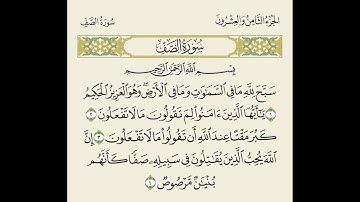 الجزء الثامن والعشرون
سورة الصف
سُورَةُ الصَّفِّ
بِسْمِ اللَّهِ الرَّحْمَٰنِ الرَّحِيمِ
سَبَّحَ لِلَّهِ مَا فِي السَّمَٰوَٰتِ وَمَا فِي الْأَرْضِ ۖ وَهُوَ الْعَزِيزُ الْحَكِيمُ
١ يَٰٓأَيُّهَا الَّذِينَ ءَامَنُوا لِمَ تَقُولُونَ مَا لَا تَفْعَلُونَ ٢
كَبُرَ مَقْتًا عِندَ اللَّهِ أَن تَقُولُوا مَا لَا تَفْعَلُونَ ٣ إِنَّ
اللَّهَ يُحِبُّ الَّذِينَ يُقَٰتِلُونَ فِي سَبِيلِهِ صَفًّا كَأَنَّهُم
بُنْيَٰنٌ مَّرْصُوصٌ ٤